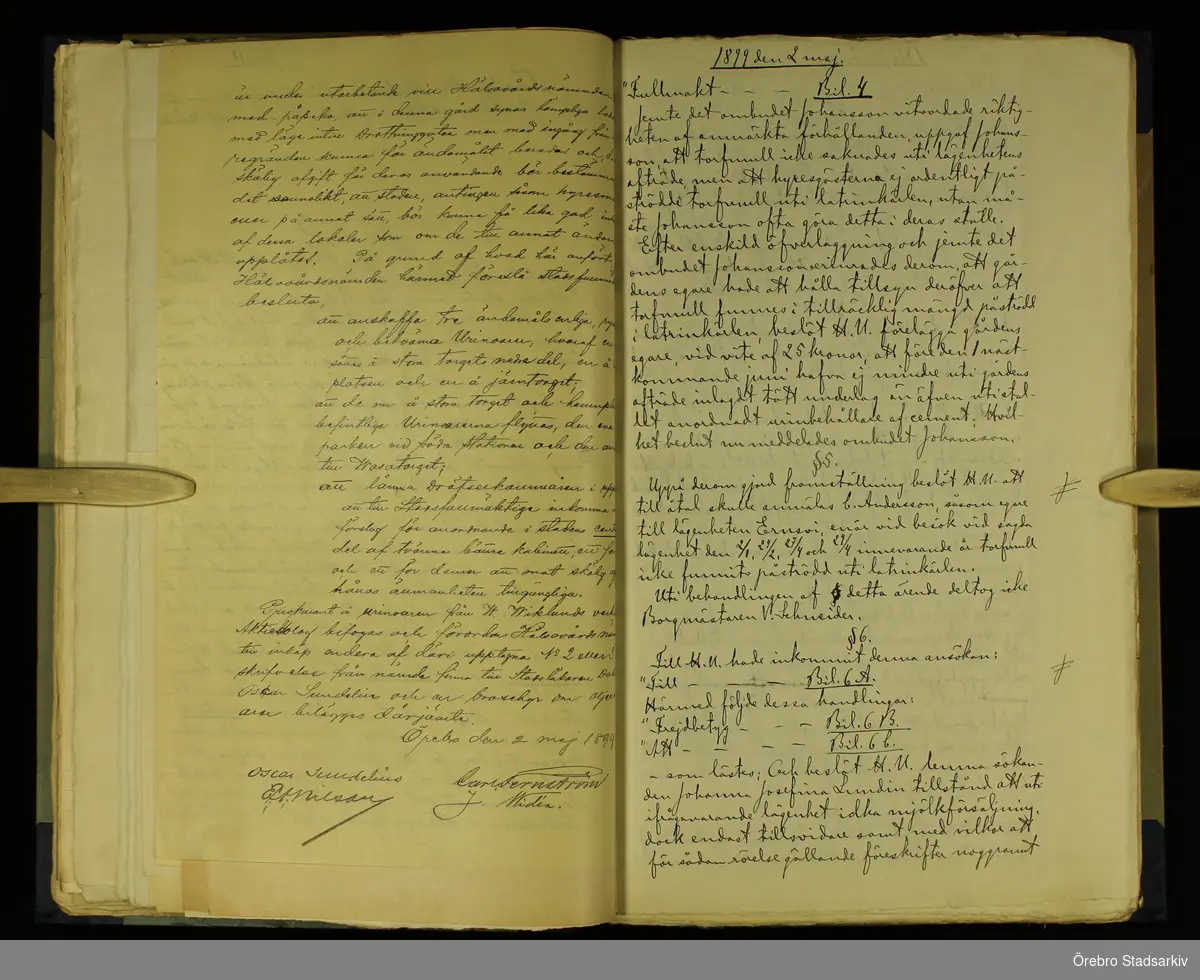 är under utarbetande vill Hälsovårdsnämnden
med påpeka, att i denna gård synas lämpliga
med läge intill Drottninggatan men med ingång från
regränden kunna för ändamålet beredas och
skälig afgift för deras användande bör bestämmas
det sannolikt, att staden, antingen såsom hyresm
eller på annat sätt, bör kunna få lika god
af dessa lokaler som om de till annat ändam
upplåtes. På grund af hvad här anförts
Hälsovårdsnämnden härmed föreslå Stadsfullmä
besluta,
att anskaffa tre ändamålsenliga,
och bekväma Urinoarer, hvaraf en
sättes i stora torgets nedre del, en å
platsen och en å järntorget;
att de nu å stora torget och
befintliga Urinoarerna flyttas, den ena
parken vid södra stationen och den an
till Wasatorget;
att lämna Drätselkammaren i upp
att till Stadsfullmäktige inkomma
förslag för anordnande i stadens cent
del af tvänne bättre kabinett, ett fö
och ett för damer att mot skälig
hållas allmänheten tillgängliga.
Priskurant å urinoarer från W. Wiklunds verk
Aktiebolag bifogas och förordar Hälsovårds
till inköp endera af däri upptagna No 2 eller
skrifvelse från nämde firma till Stadsläkaren
Oscar Sundelius och en broschyr om
arer bilägges därjämte.
Örebro den 2 maj 1899
Oscar Sundelius Carl Fernström
E. A. Nilson J. Widén.
1899 den 2 maj.
"Fullmakt – – – Bil. 4
Jemte det ombudet Johansson vitsordade riktig-
heten af anmärkta förhållanden, uppgaf Johans-
son, att torfmull icke saknades uti lägenhetens
afträde, men att hyresgästerna ej ordentligt på-
strödde torfmull uti latrinkärlen, utan må-
ste Johansson ofta göra detta i deras ställe.
Efter enskild öfverläggning och jemte det
ombudet Johansson erinrades derom, att går-
dens egare hade att hålla tillsyn deröfver att
torfmull funnes i tillräcklig mängd påströdd
i latrinkärlen, beslöt H.N. förelägga gårdens
egare, vid vite af 25 kronor, att före den 1 näst-
kommande juni hafva ej mindre uti gårdens
afträde inlagdt tätt underlag än äfven uti stal-
let anordnadt urinbehållare af cement; Hvil-
ket beslut nu meddelades ombudet Johansson.
§5.
Uppå derom gjord framställning beslöt H.N. att
till åtal skulle anmälas C. Andersson, såsom egare
till lägenheten Ernsvi, enär vid besök vid sagda
lägenhet den 2/1, 23/2, 27/4 och 29/4 innevarande år torfmull
icke funnits påströdd uti latrinkärlen.
Uti behandlingen af detta ärende deltog icke
Borgmästaren V. Schneider.
§6.
Till H.N. hade inkommit denna ansökan:
"Till – – – Bil. 6 A.
Härmed följde dessa handlingar:
"Frejdbetyg – – Bil. 6 B.
"Att – – – – Bil. 6 C.
– som lästes; Och beslöt H.N. lemna sökan-
den Johanna Josefina Lundin tillstånd att uti
ifrågavarande lägenhet idka mjölkförsäljning,
dock endast tillsvidare samt med vilkor att
för sådan rörelse gällande föreskrifter noggrannt
Örebro Stadsarkiv